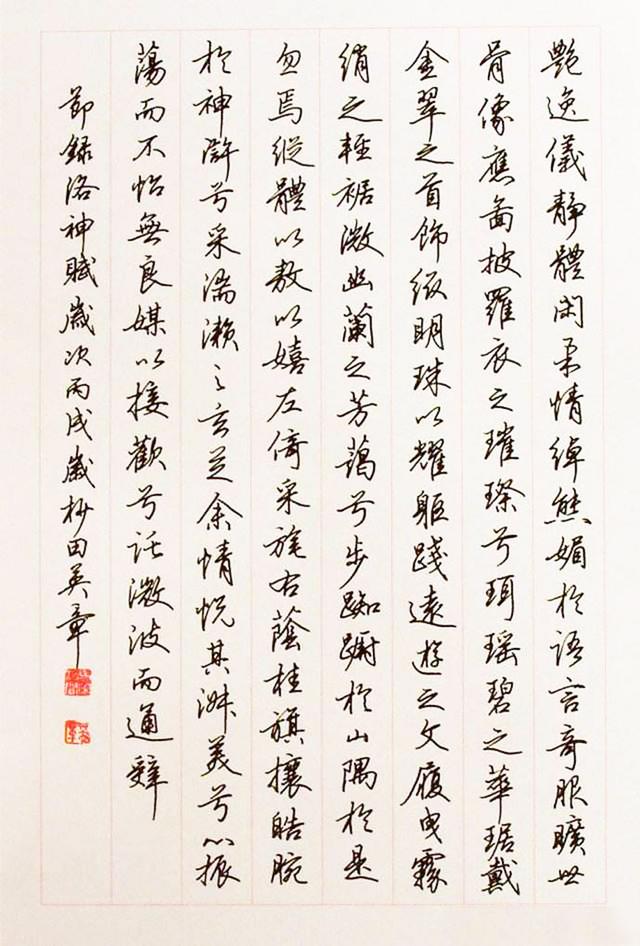 艷逸儀靜體閑柔情綽態媚於語言奇服曠世
骨像應圖披羅衣之璀璨兮珥瑤碧之華琚戴
金翠之首飾綴明珠以耀軀踐遠遊之文履曳霧
綃之輕裾微幽蘭之芳藹兮步踟躕於山隅於是
忽焉縱體以敖以嬉左倚采旄右蔭桂旗攘皓腕
於神滸兮采湍瀨之玄芝余情悅其淑美兮心振
蕩而不怡無良媒以接歡兮託微波而通辭
節錄洛神賦歲次丙戌歲杪田英章